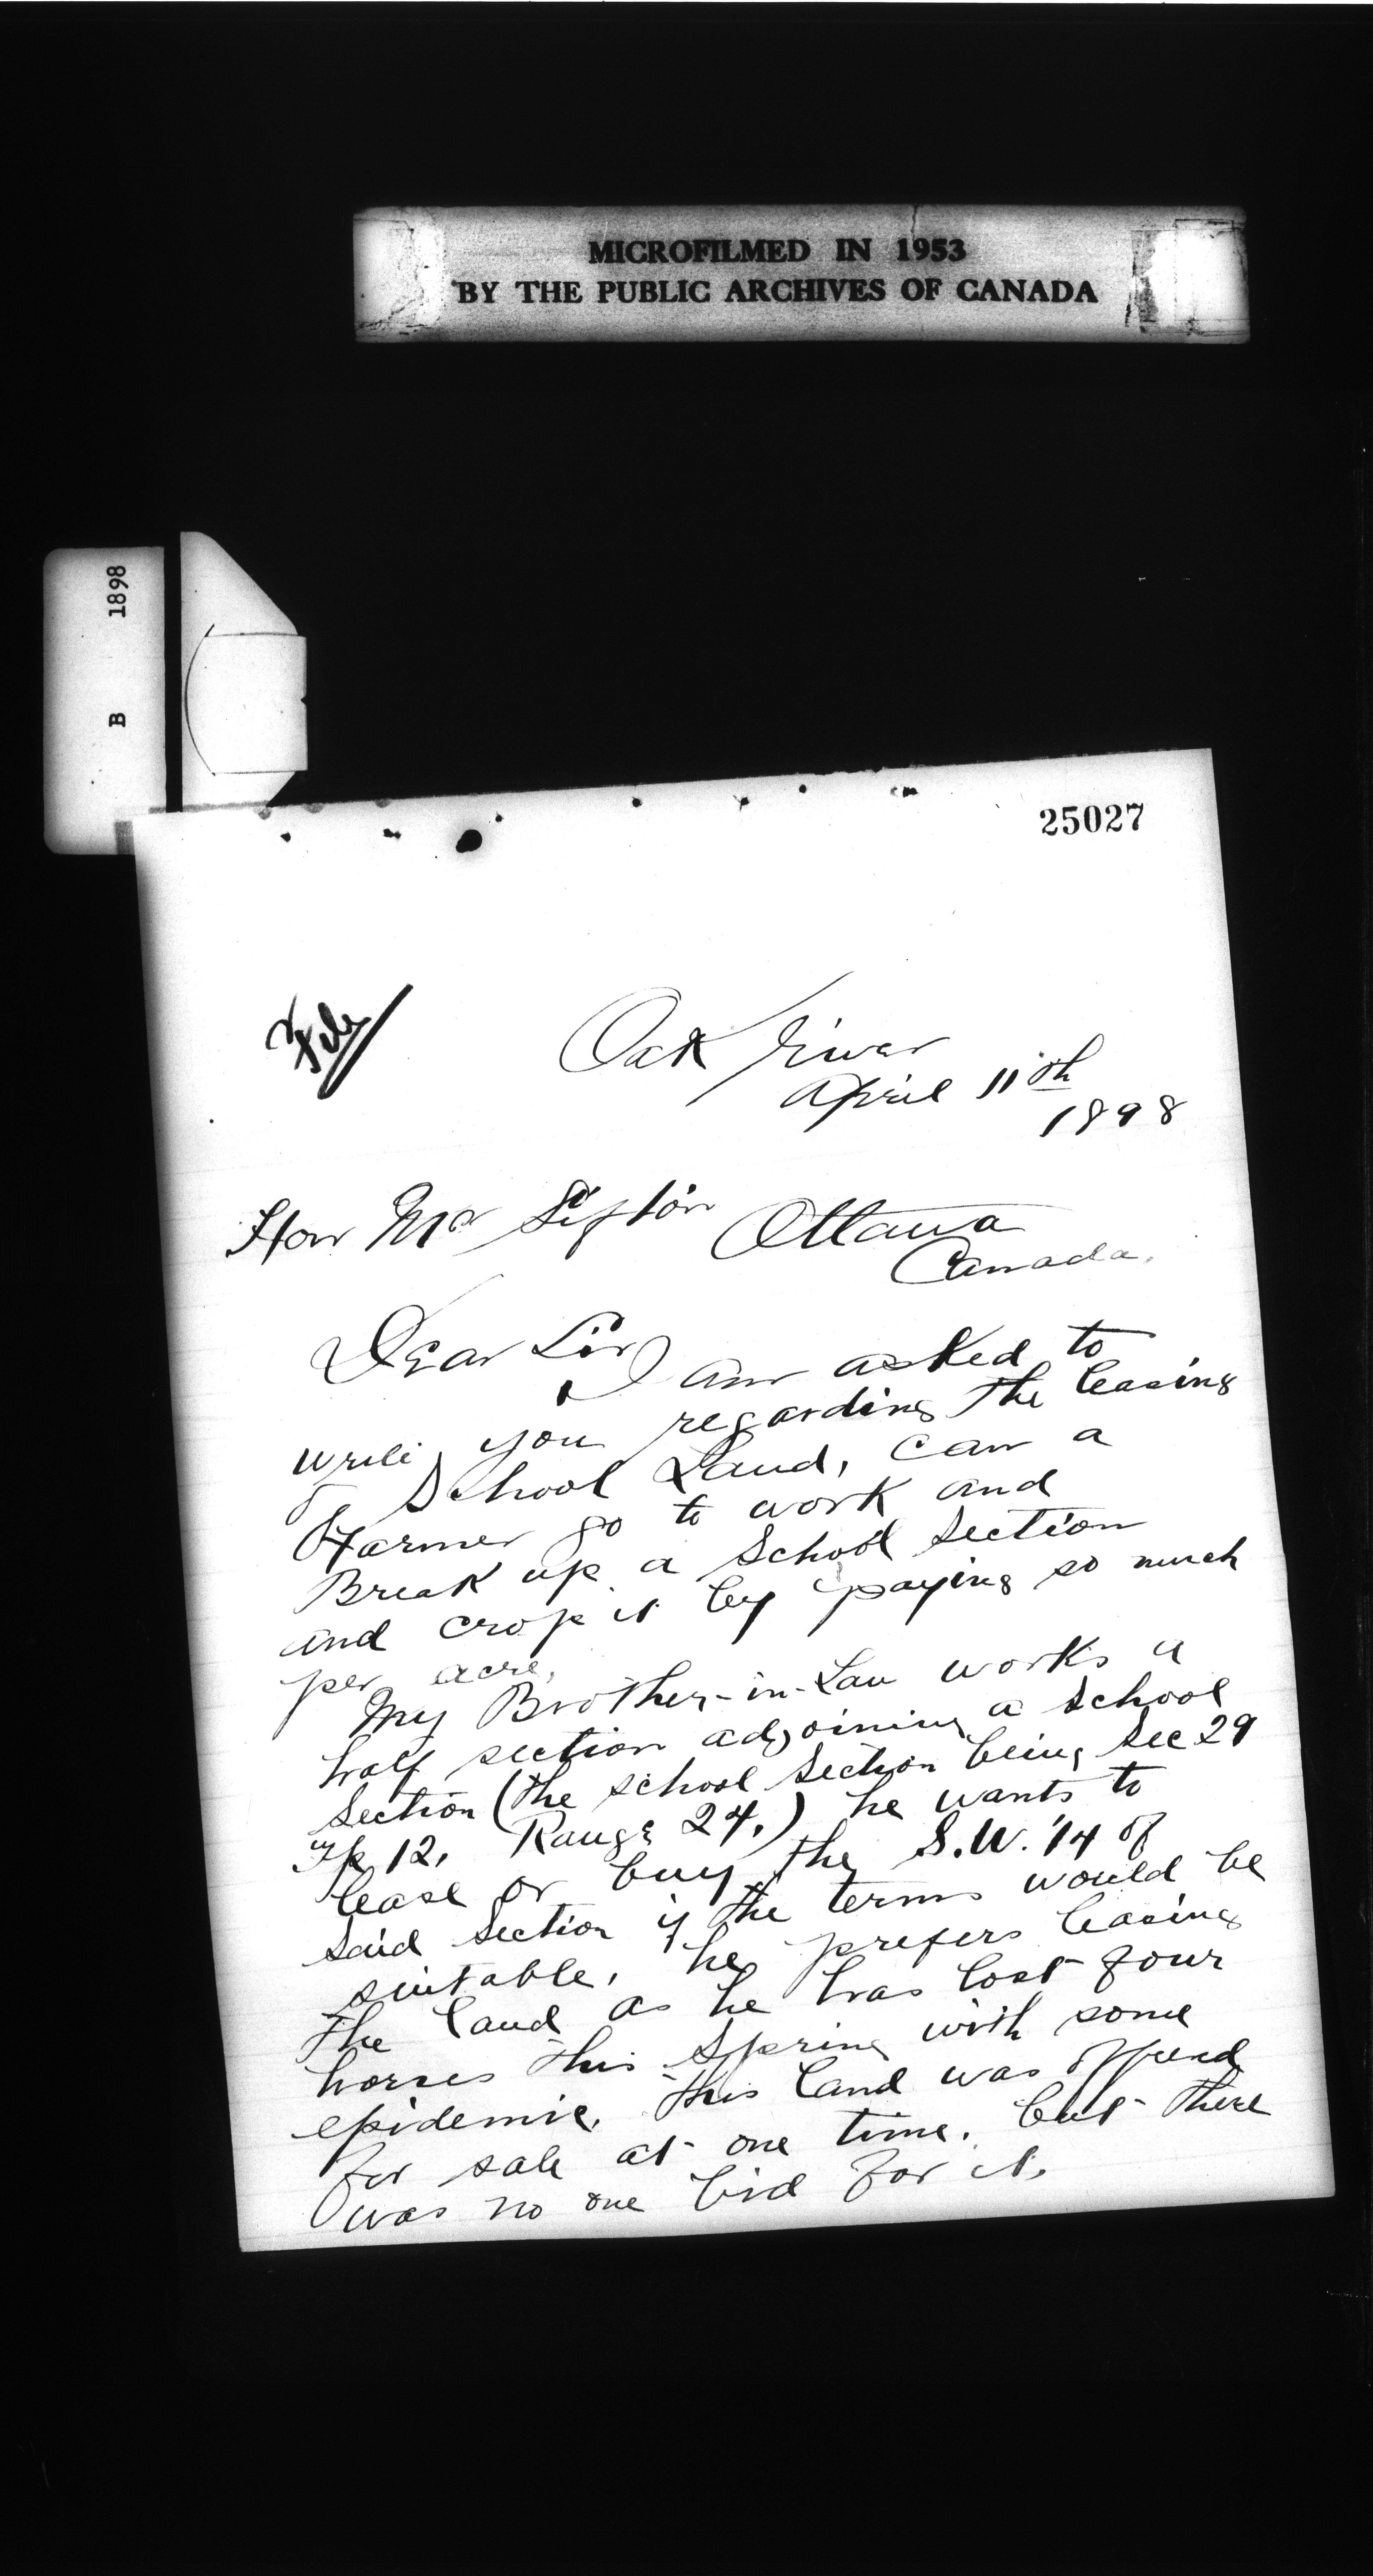 MICROFILMED IN 1953
BY THE PUBLIC ARCHIVES OF CANADA
B 1898
25027
File
Oak River
April 11th
1898
Hon Mr Sifton Ottawa
Canada.
Dear Sir
I am asked to
write you regarding the leasing
of School Land, can a
Farmer go to work and
Break up a School Section
and crop it by paying so much
per acre,
My Brother-in-Law works a
half section adjoining a School
Section (the school Section being Sec 29
Tp 12, Range 24,) he wants to
lease or buy the S.W. 1/4 of
said Section if the terms would be
suitable, he prefers leasing
the land as he has lost four
horses this Spring with some
epidemic, this land was offered
for sale at one time, but there
was no one bid for it,